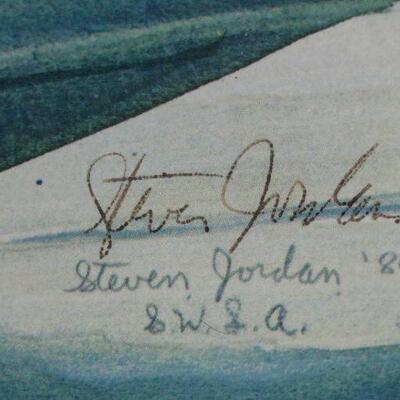 Steven Jordan
Steven Jordan '8
S.W.S.A.